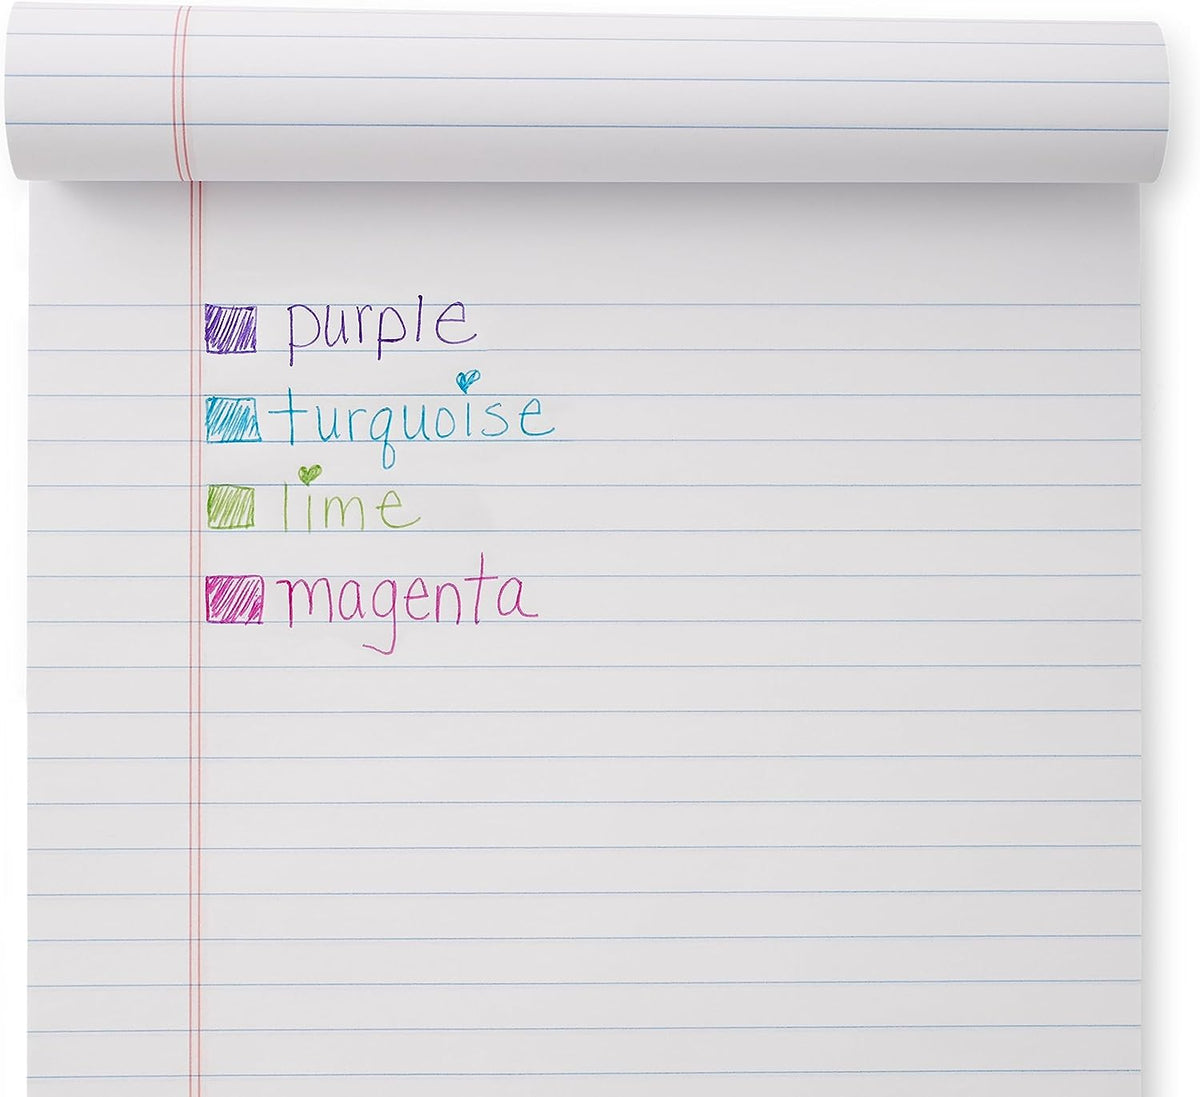 purple
turquoise
lime
magenta